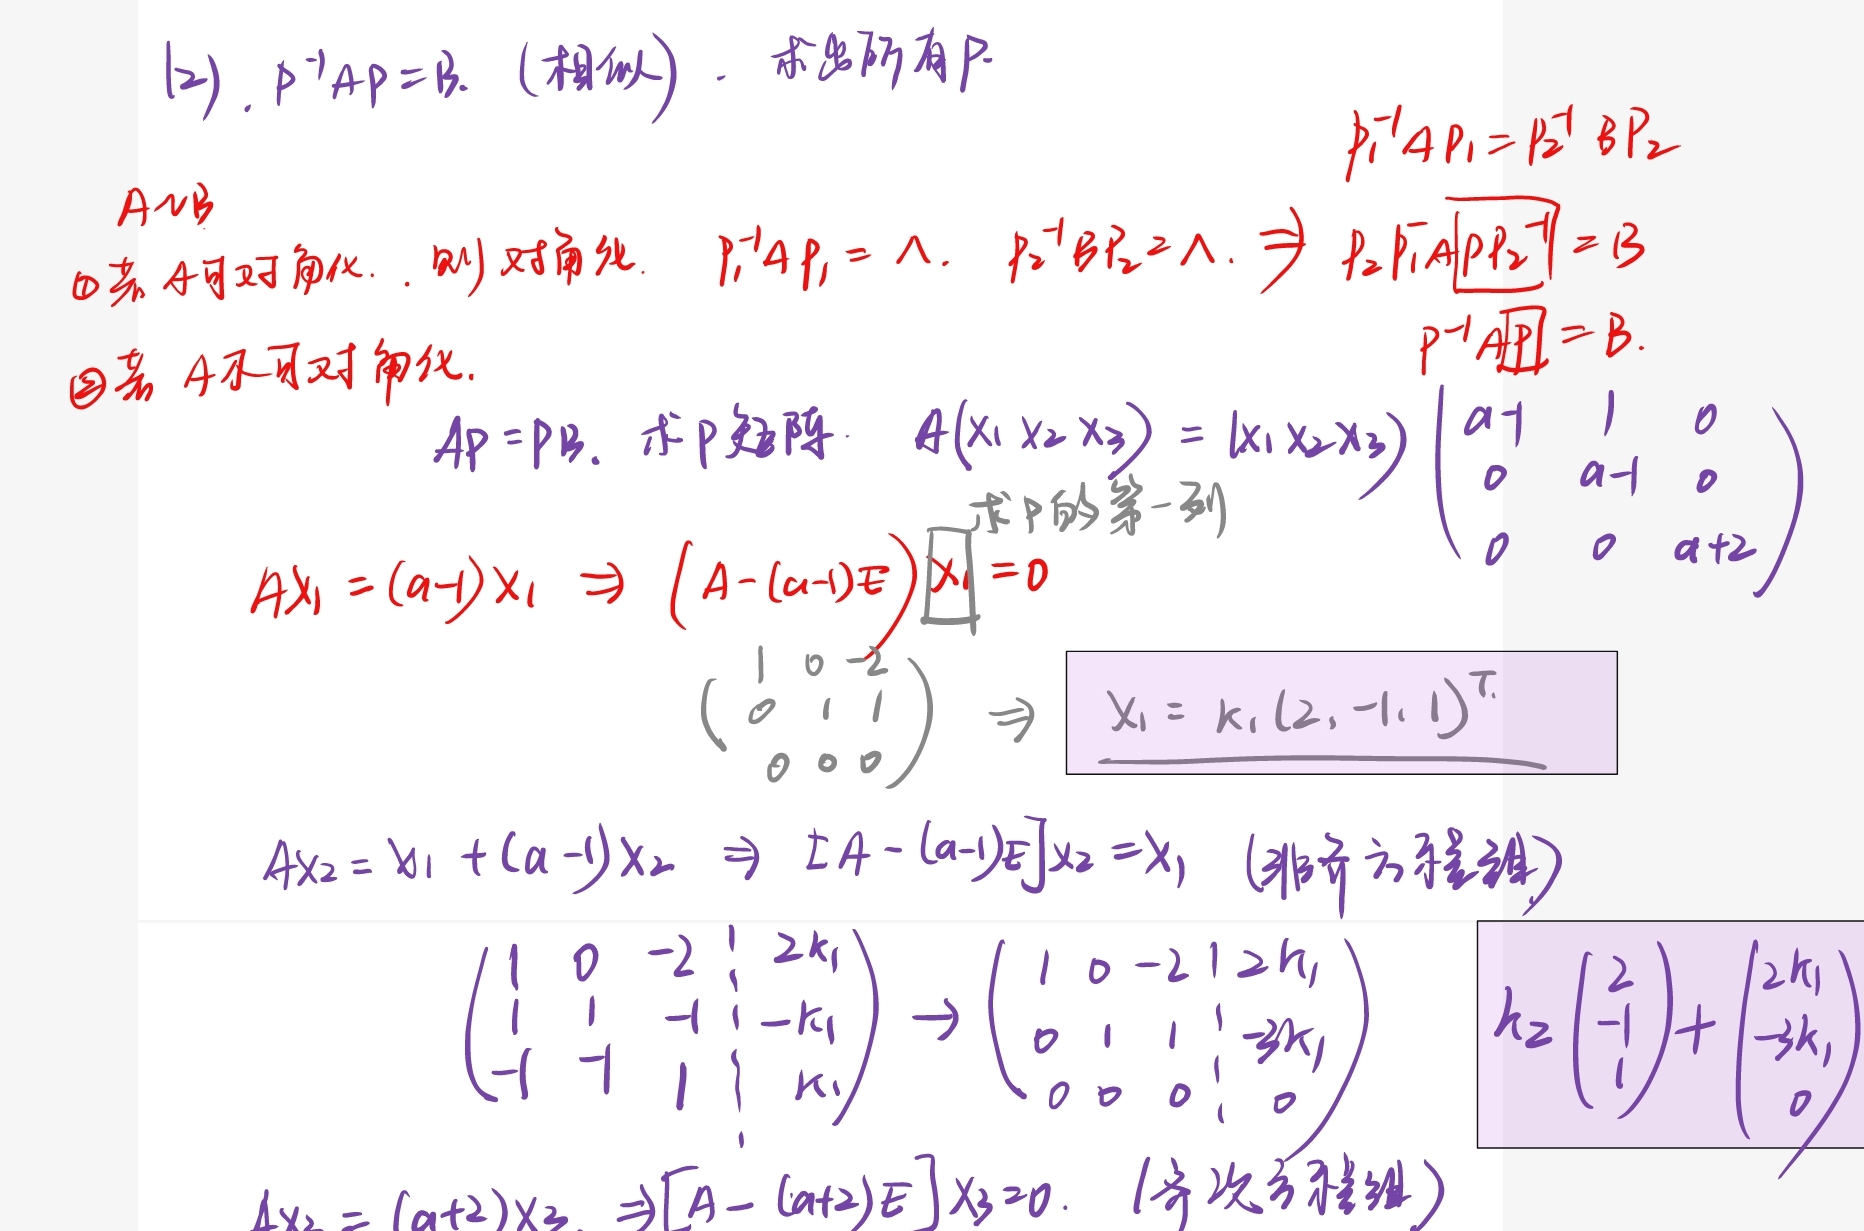 (2). P⁻¹AP=B. (相似). 求出所有P.
P₁⁻¹AP₁=P₂⁻¹BP₂
A∼B
①若A可对角化. . 则对角化. P₁⁻¹AP₁=Λ. P₂⁻¹BP₂=Λ. ⇒ P₂P₁⁻A PP₂⁻¹=B
P⁻¹AP=B.
②若A不可对角化.
AP=PB. 求P矩阵. A(X₁ X₂ X₃) = (X₁ X₂ X₃) ( a-1 1 0
0 a-1 0
0 0 a+2 )
求P的第一列
AX₁=(a-1)X₁ ⇒ (A-(a-1)E)X₁=0
( 1 0 -2
0 1 1
0 0 0 ) ⇒ X₁=K₁(2,-1,1)ᵀ.
AX₂=X₁+(a-1)X₂ ⇒ [A-(a-1)E]X₂=X₁ (非齐方程组)
( 1 0 -2 ¦ 2K₁
1 1 -1 ¦ -K₁
-1 -1 1 ¦ K₁ ) → ( 1 0 -2 ¦ 2K₁
0 1 1 ¦ -3K₁
0 0 0 ¦ 0 )
K₂ ( 2
-1
1 ) + ( 2K₁
-3K₁
0 )
AX₃=(a+2)X₃. ⇒ [A-(a+2)E]X₃=0. (齐次方程组)